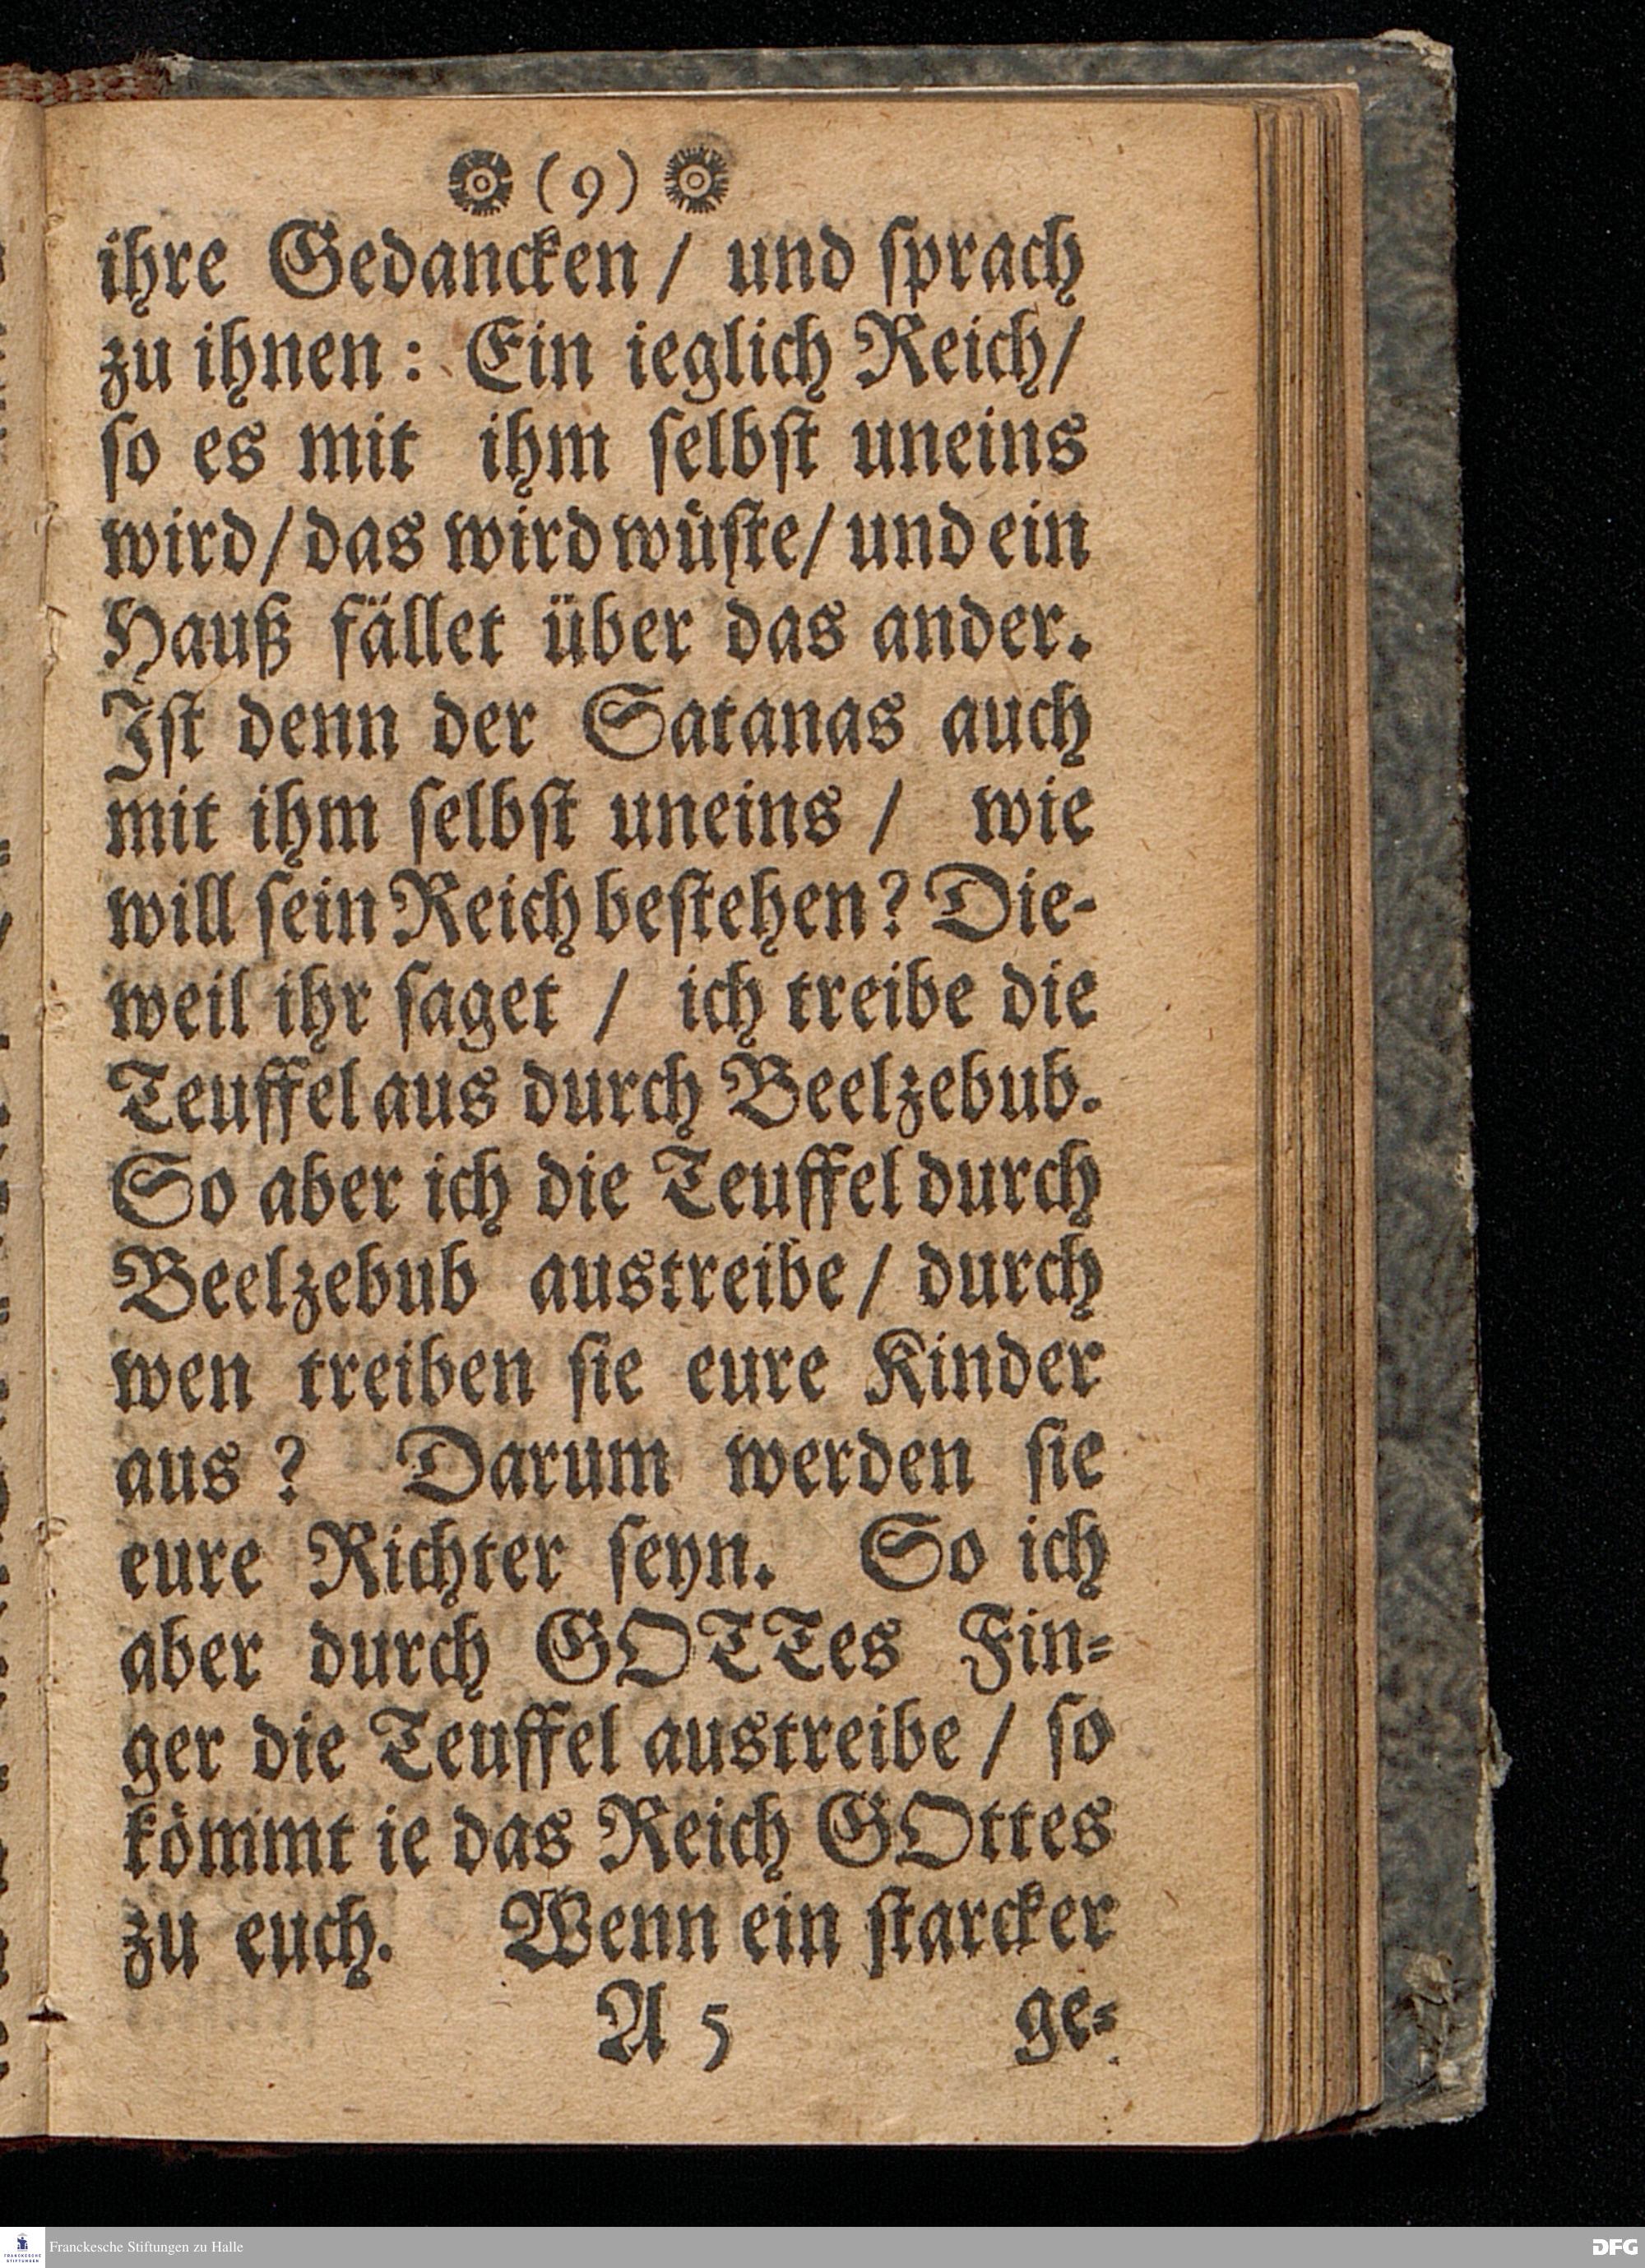 (9)
ihre Gedancken / und ſprach
zu ihnen: Ein ieglich Reich/
ſo es mit ihm ſelbſt uneins
wird/ das wird wuͤſte/ und ein
Hauß faͤllet uͤber das ander.
Iſt denn der Satanas auch
mit ihm ſelbſt uneins / wie
will ſein Reich beſtehen? Die-
weil ihr ſaget / ich treibe die
Teuffel aus durch Beelzebub.
So aber ich die Teuffel durch
Beelzebub austreibe / durch
wen treiben ſie eure Kinder
aus ? Darum werden ſie
eure Richter ſeyn. So ich
aber durch GOTTes Fin-
ger die Teuffel austreibe / ſo
koͤmmt ie das Reich GOttes
zu euch. Wenn ein ſtarcker
A 5 ge-
FRANCKESCHE STIFTUNGEN
Franckesche Stiftungen zu Halle
DFG